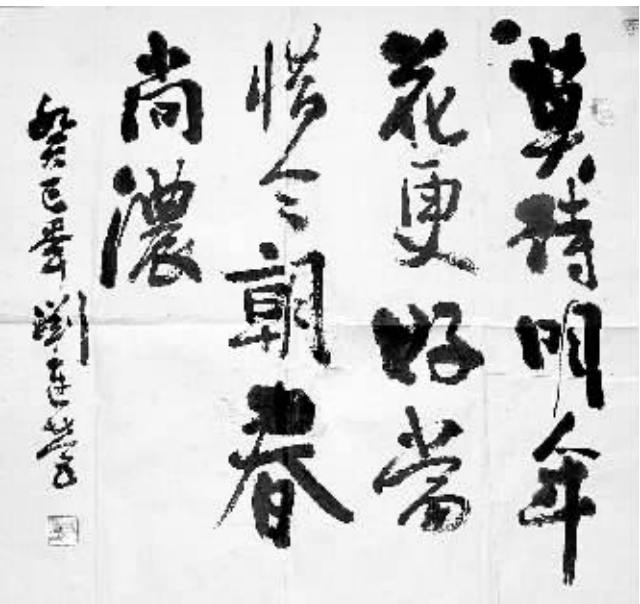 莫待明年
花更好當
惜今朝春
尚濃
癸巳年劉连营